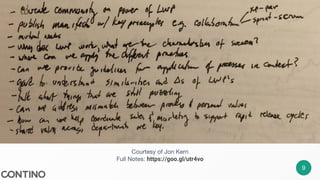 - Educate community on power of LWP
- publish manifesto w/ key precepts e.g. collaboration
xp-pair
sprint-scrum
- mutual values
- why does LWP work, what are the characteristics of success?
- where can we apply the different practices
- can we provide guidelines for application of processes in context?
- goal to understand similarities and Δs of LWP's
- talk about things that are still puzzling
- can we address mismatch between process & personal values
- how can we help coordinate sales & marketing to support rapid release cycles
- shared values across departments are key.
Courtesy of Jon Kern
Full Notes: https://goo.gl/utr4vo
9
CONTINO